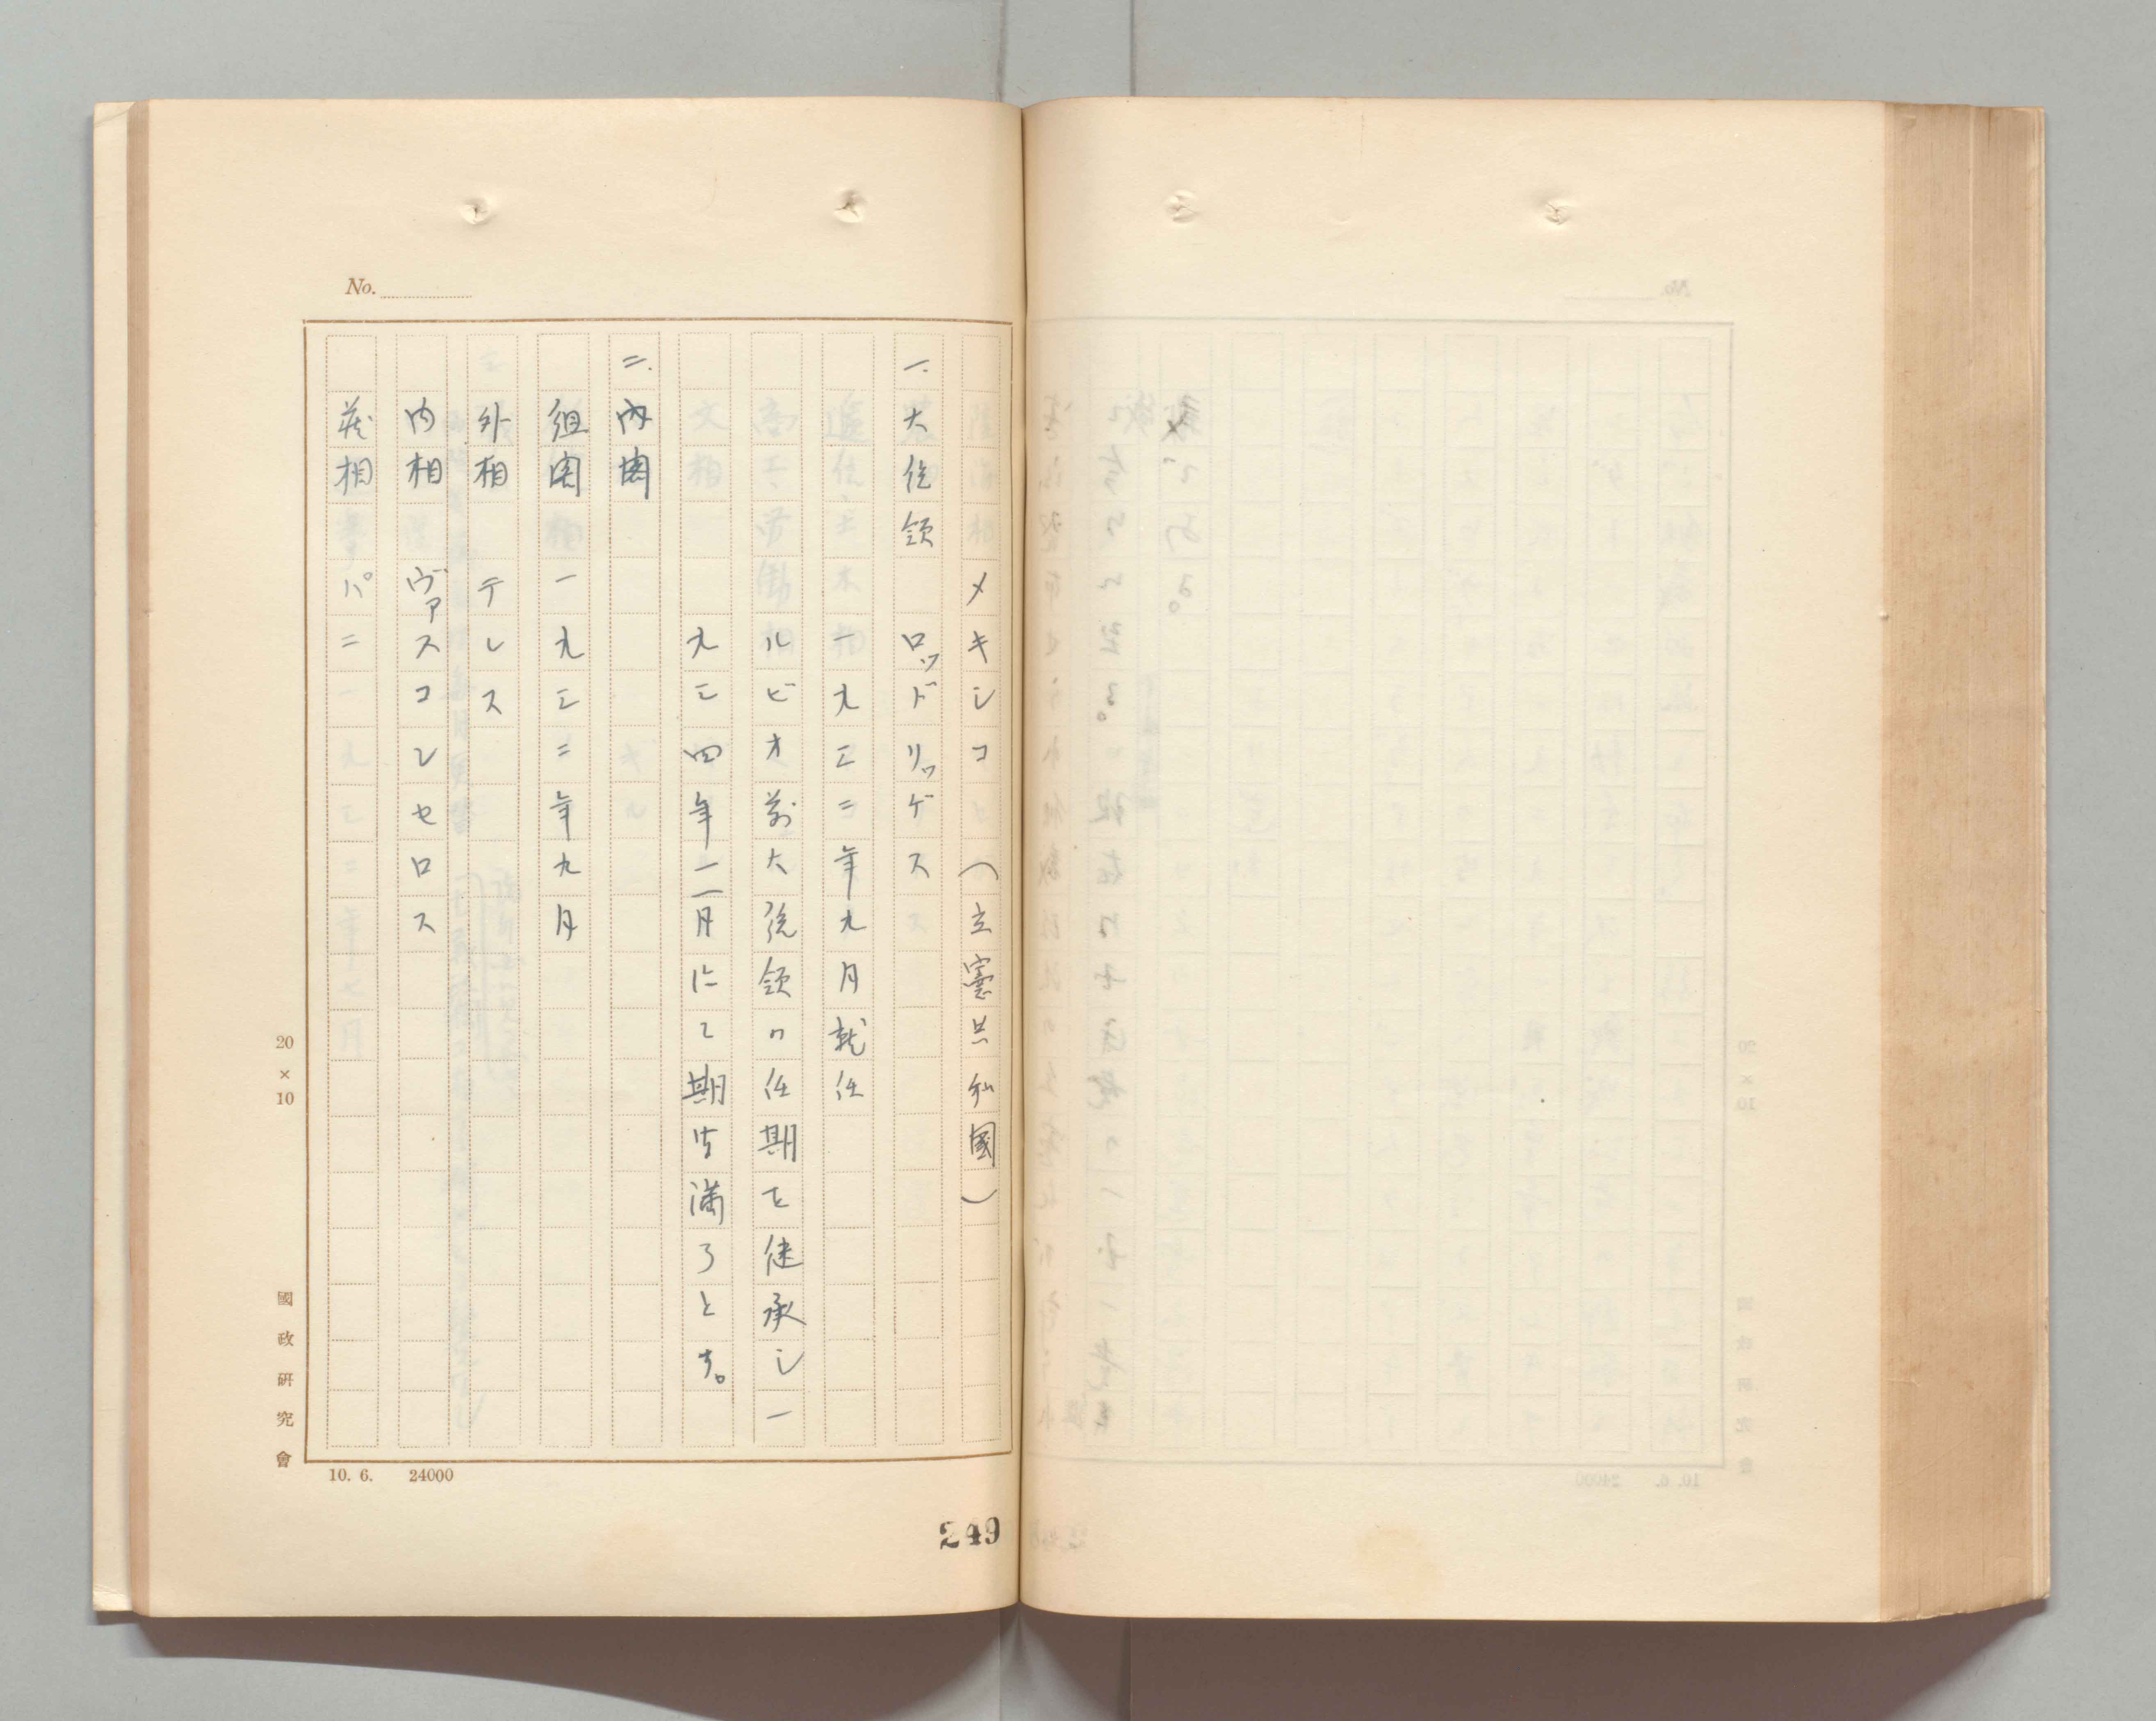 No.
メキシコ（立憲共和國）
一.大統領 ロッドリッゲス
一九三二年九月就任
ルビオ前大統領の任期を継承し一
九三四年一一月にて期は満ろとす。
二.内閣
組閣 一九三二年九月
外相 テレス
内相 ヴァスコンセロス
蔵相 パニ
20×10
國政研究會
10. 6. 24000
249